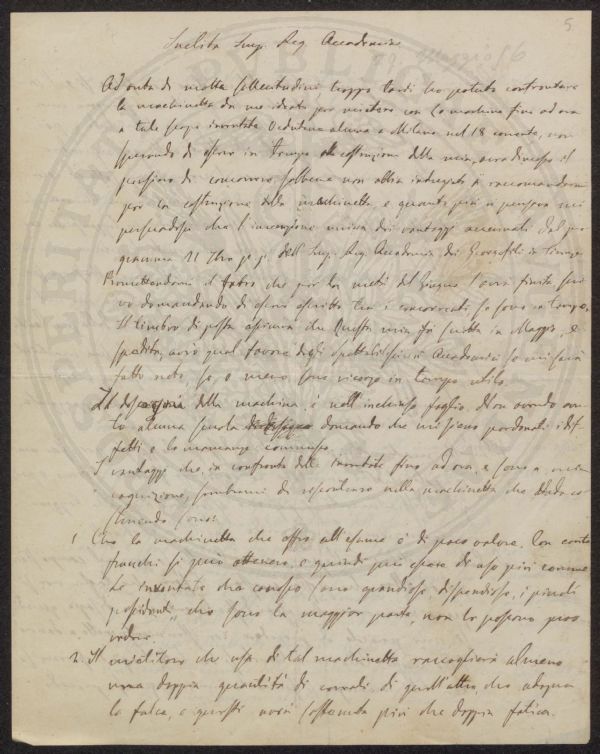 5
Maggio 56
Inclita Imp. Reg. Accademia
Ad onta di molta sollecitudine troppo tardi ho potuto confrontare
la macchinetta da me ideata per mietere con le machine fino ad ora
a tale scopo inventate a Milano nel 18 corrente, non
sperando di essere in tempo alla costruzione della mia, avea dimesso il
pensiero di concorrere, sebbene non abbia
per la costruzione della machinetta, e quanto più ci pensava mi
persuadeva che l'invenzione univa dei vantaggi accennati dal pro
gramma 21 p. p. dell'Imp. Reg. Accademia dei Georgofili in Firenze
Promettendomi il fabro che per la metà del Giugno l'avrà finita, scri
vo domandando di essere ascritto tra i concorrenti se sono in tempo.
Il timbro di posta assicura che questa mia fu scritta in Maggio, e
spedita, avrò qual favore degli spettabilissimi Accademici se mi sarà
fatto noto se, o meno sono in tempo utile.
Il della machina è nell'inchiuso foglio. Non avendo avu
to alcuna scuola domando che mi sieno perdonati i dif
fetti e le mancanze commesse.
I vantaggi che, in confronto delle inventate fino ad ora, e sono a mia
cognizione, sembrami di riscontrare nella machinetta che
struendo sono:
1 Che la machinetta che offro all'esame è di poco valore. Con cento
franchi si può ottenere, e quindi può essere di uso più comune
Le inventate che conosco sono grandiose, dispendiose, i piccoli
possidenti, che sono la maggior parte, non le possono pro
vedere.
2. Il mietitore che usa di tal machinetta raccoglierà almeno
una doppia quantità di cereali, di quell'altro che adopra
la falce, e questi avrà sostenuta più che doppia fatica.